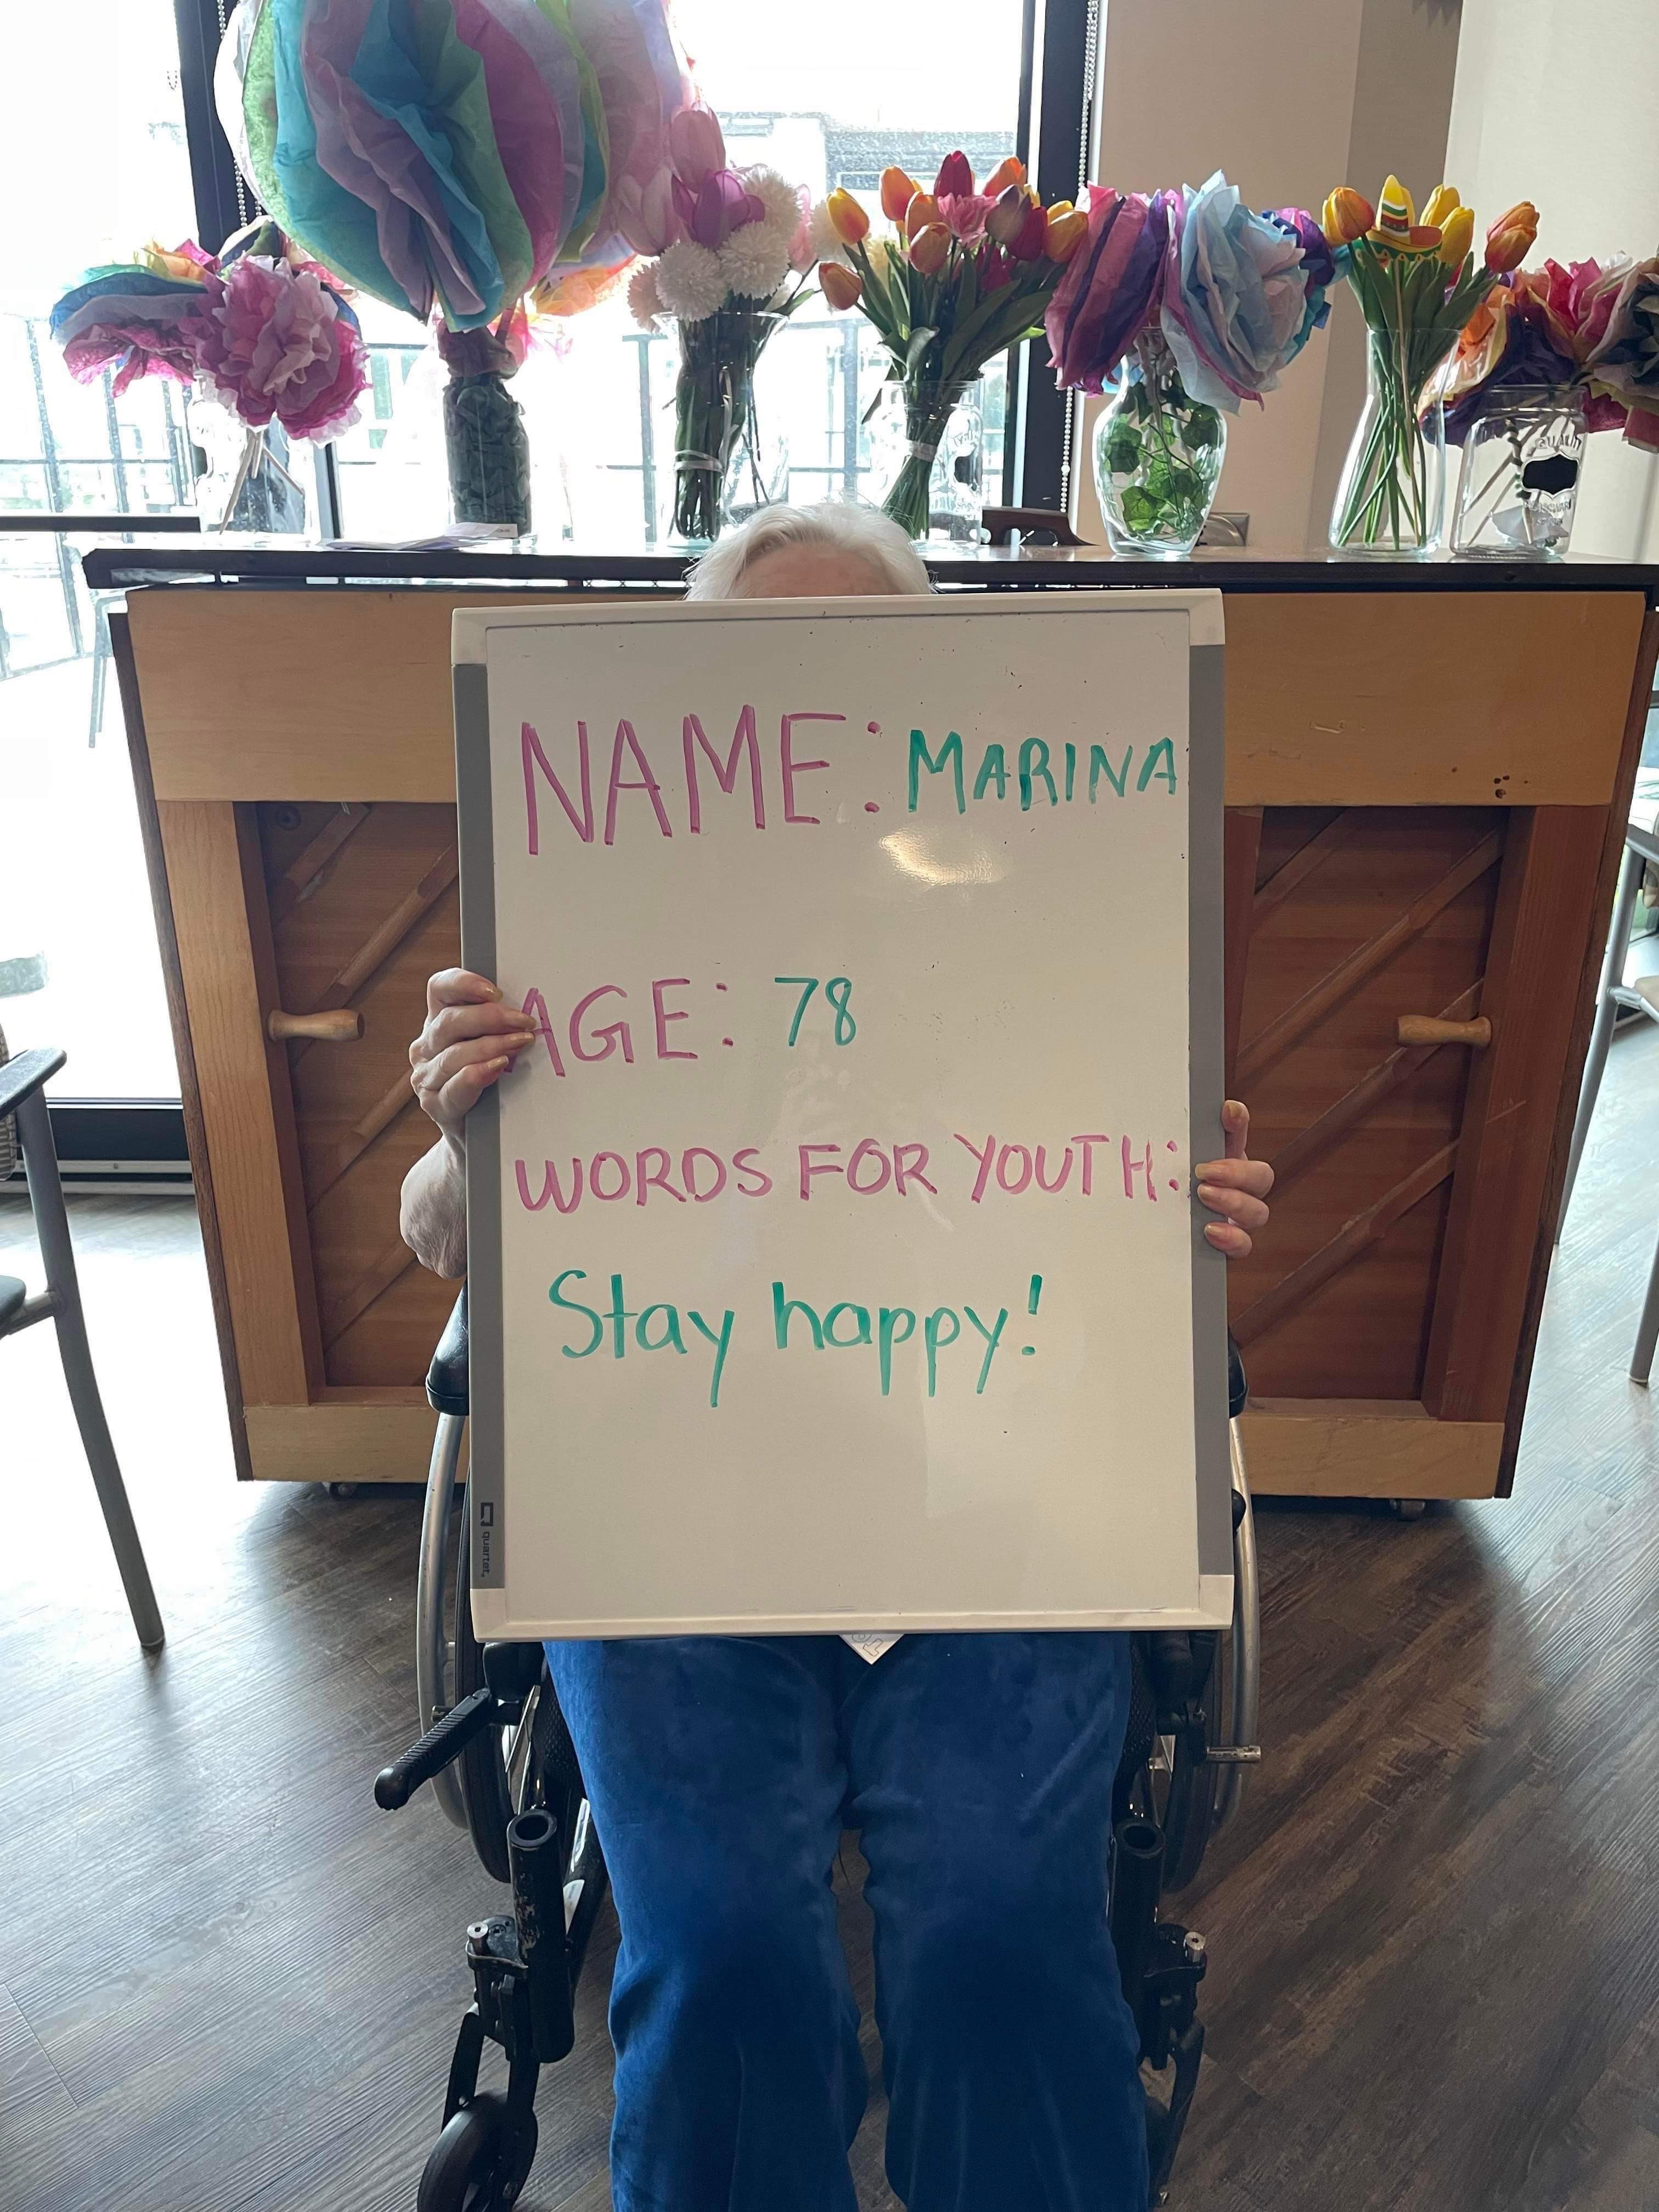 NAME: MARINA
AGE: 78
WORDS FOR YOUTH:
Stay happy!
quartet